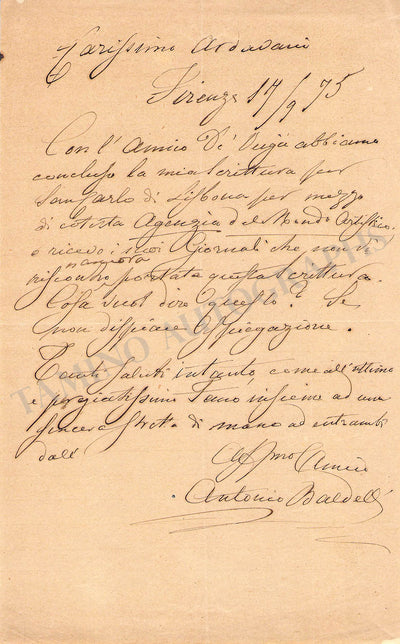 Carissimo Ardavani
Firenze 17/9 75
Con l'amico De' Veiga abbiamo
concluso la mia scrittura per
San Carlo di Lisbona per mezzo
di cotesta Agenzia del Mondo Artistico.
e ricevo i suoi Giornali che non vi
riscontro maggiora portata questa scrittura.
Cosa vuol dire questo? Se
non dispiace spiegazione.
Tanti saluti intanto, come all'ottimo
e pregiatissimo Fano insieme ad una
sincera stretta di mano ad entrambi
dall'
Aff.mo Amico
Antonio Baldelli
TAMINO AUTOGRAPHS